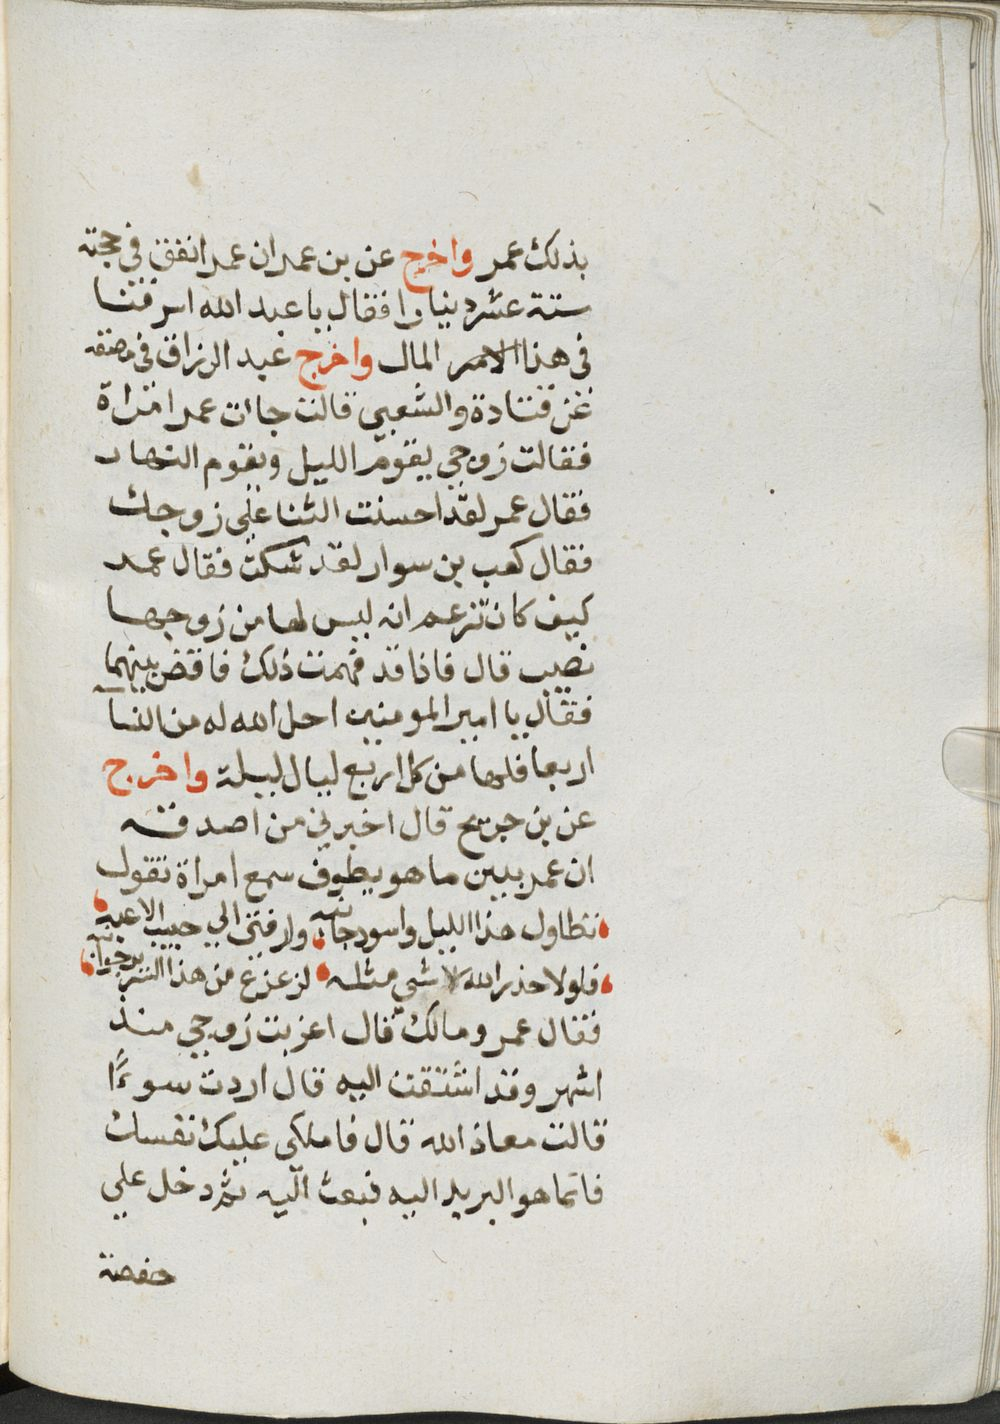 بذلك عمر واخرج عن بن عمر ان عمر انفق في حجته
ستة عشر دينارا فقال يا عبد الله اسرفنا
في هذا الامر المال واخرج عبد الرزاق في مصنفه
عن قتادة والشعبي قالت جاات عمر امراة
فقالت زوجي يقوم الليل ويقوم النهار
فقال عمر لقد احسنت الثنا على زوجك
فقال كعب بن سوار لقد شكت فقال عمر
كيف كان تزعم انه ليس لها من زوجها
نصيب قال فاذا قد فهمت ذلك فاقض بينهما
فقال يا امير المومنين احل الله له من النسآ
اربعا فلها من كل اربع ليال ليلة واخرج
عن بن جريج قال اخبرني من اصدقه
ان عمر بينما هو يطوف سمع امراة تقول
تطاول هذا الليل واسود جانبه وارقني الي حبيب الاعبه
فلولا حذر الله لا شي مثله لزعزع من هذا السرير جوانبه
فقال عمر ومالك قال اغربت زوجي منذ
اشهر وقد اشتقت اليه قال اردت سوءًا
قالت معاذ الله قال فاملكي عليك نفسك
فانما هو البريد اليه فبعث اليه ثم دخل علي
حفصة